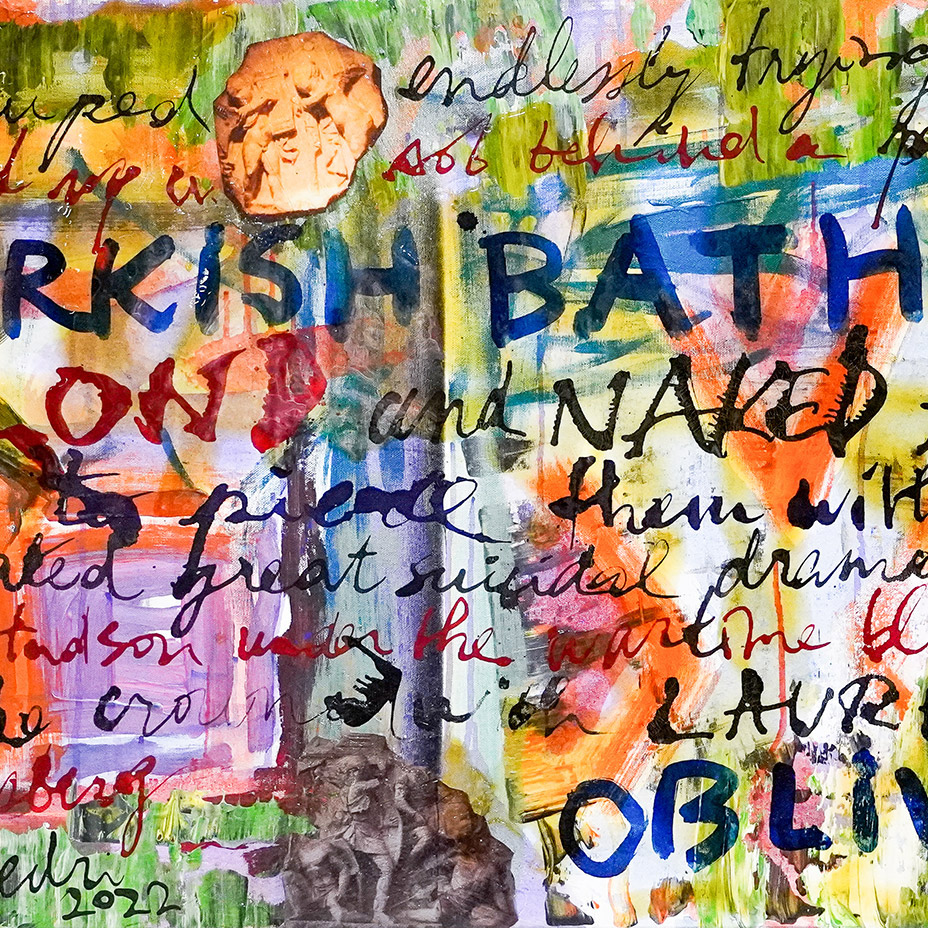 uped endlessly trying
up a sob behind a
RKISH BATH
OND and NAKED
to pierce them with
ated great suicidal drama
Hudson under the wartime bl
he crowned with LAUR
sberg OBLIV
edri
2022